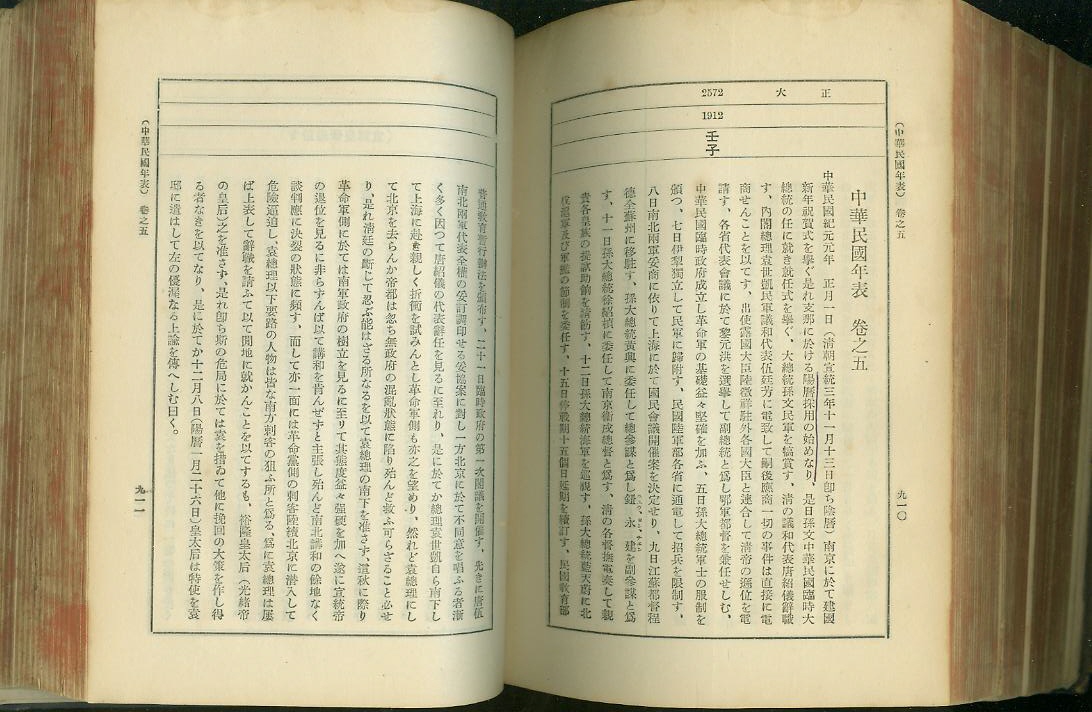 (中華民國年表) 卷之五
九一〇
正
火
2572
1912
壬子
中華民國年表 卷之五
中華民國紀元元年 正月一日(清朝宣統三年十一月十三日卽ち陰曆)南京に於て建國
新年祝賀式を擧ぐ是れ支那に於ける陽曆採用の始めなり、是日孫文中華民國臨時大
總統の任に就き就任式を擧ぐ、大總統孫文民軍を犒賞す、清の議和代表唐紹儀辭職
す、內閣總理袁世凱民軍議和代表伍廷芳に電致して嗣後應商一切の事件は直接に電
商せんことを以てす、出使露國大臣陸徵祥駐外各國大臣と連合して清帝の遜位を電
請す、各省代表會議に於て黎元洪を選擧して副總統と爲し鄂軍都督を兼任せしむ、
中華民國臨時政府成立し革命軍の基礎益々堅確を加ふ、五日孫大總統軍士の服制を
頒つ、七日伊犁獨立して民軍に歸附す、民國陸軍部各省に通電して招兵を限制す、
八日南北兩軍妥商に依りて上海に於て國民會議開催案を決定せり、九日江蘇都督程
德全蘇州に移駐す、孫大總統黃興に委任して總參謀と爲し鈕、永、建を副參謀と爲
す、十一日孫大總統徐紹楨に委任して南京衛戍總督と爲す、清の各督撫電奏して親
貴各皇族の提試助餉を請飭す、十二日孫大總統海軍を巡視す、孫大總統藍天蔚に北
伐滬軍及び軍艦の節制を委任す、十五日停戰期十五個日延期を續訂す、民國敎育部
普通敎育暫行辦法を頒布す、二十一日臨時政府の第一次閣議を開催す、先きに唐伍
南北兩軍代表全權の妥訂調印せる妥協案に對し一方北京に於て不同意を唱ふる者漸
く多く因つて唐紹儀の代表辭任を見るに至れり、是に於てか總理袁世凱自ら南下し
て上海に赴き親しく折衝を試みんとし革命軍側も亦之を望めり、然れど袁總理にし
て北京を去らんか帝都は忽ち無政府の混亂狀態に陷り殆んど救ふ可らざること必せ
り、是れ清廷の斷じて忍ぶ能はざる所なるを以て袁總理の南下を准さず、這秋に際り
革命軍側に於ては南軍政府の樹立を見るに至りて其態度益々强硬を加へ遂に宣統帝
の退位を見るに非らずんば以て講和を肯んぜずと主張し殆んど南北講和の餘地なく
談判應に決裂の狀態に頻す、而して亦一面には革命黨側の刺客陸續北京に潛入して
危險逼迫し、袁總理以下要路の人物は皆な南方刺客の狙ふ所と爲る、爲に袁總理は屢
ば上表して辭職を請ふて以て閑地に就かんことを以てするも、裕隆皇太后(光緖帝
の皇后)之を准さず、是れ卽ち斯の危局に於ては袁を措ゐて他に挽回の大策を作し得
る者なきを以てなり、是に於てか十二月八日(陽曆一月二十六日)皇太后は特使を袁
邸に遣はして左の優渥なる上諭を傳へしむ曰く。
(中華民國年表) 卷之五
九一一